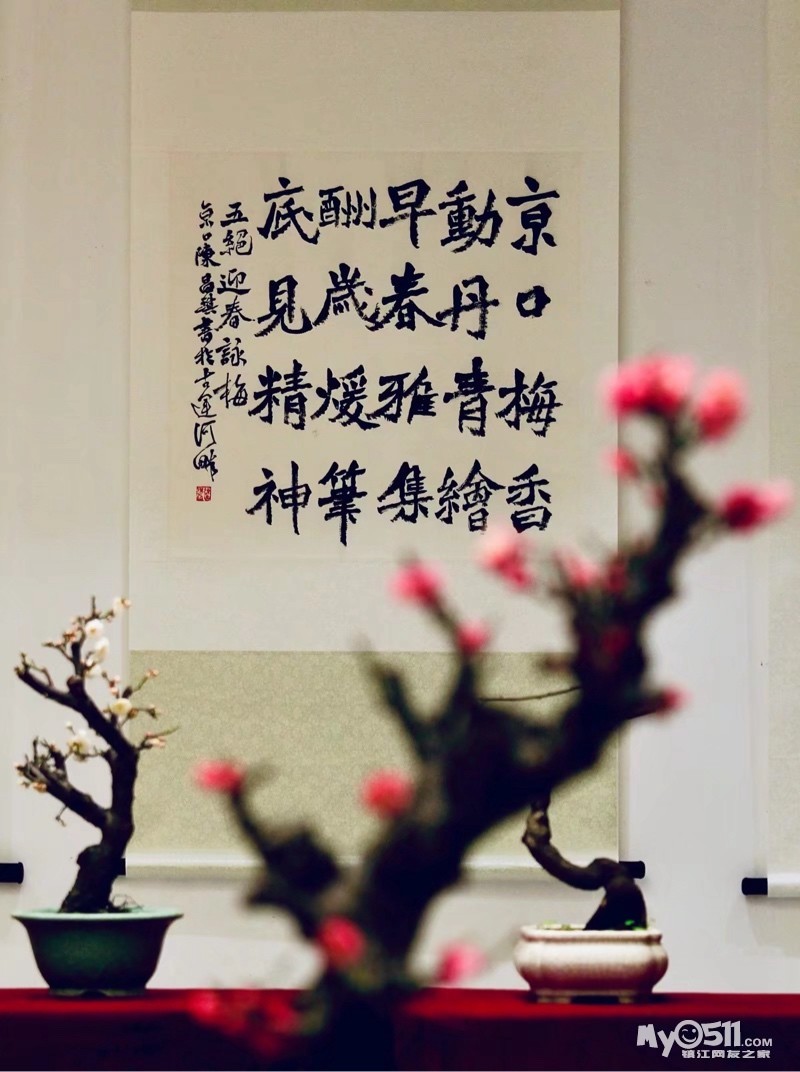 京口梅香
動丹青繪
早春雅集
酬歲煖筆
底見精神
五絕迎春詠梅
京口陳昌藝書於古運河畔
MyO511.COM
镇江网友之家